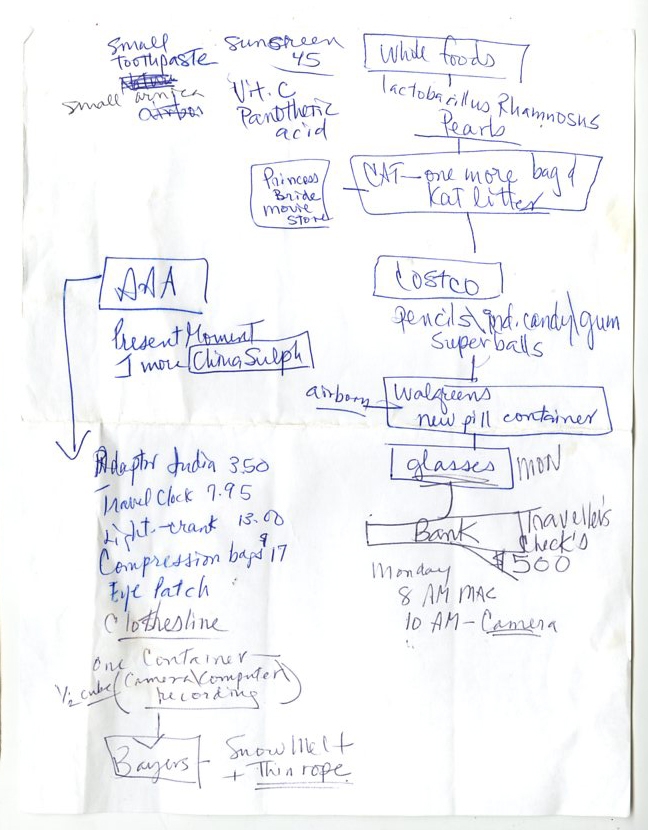 small
toothpaste
small arnica
sunscreen
45
Vit. C
Pantothetic
acid
Whole foods
lactobacillus Rhamnosus
Pearls
CAT — one more bag of
Kat litter
Princess
Bride
movie
store
AAA
Present Moment
1 more China Sulph
Costco
pencils\ind. candy\gum
Superballs
airborn
Walgreens
new pill container
glasses MON
Bank
Traveller's
Check's
$500
Monday
8 AM MAC
10 AM - Camera
Adaptor India 3.50
Travel Clock 7.95
Light - crank 13.00
Compression bags 9 17
Eye Patch
Clothesline
one Container
1/2 cube (Camera\Computer
recording)
Bayers
Snow Melt
+ Thin rope